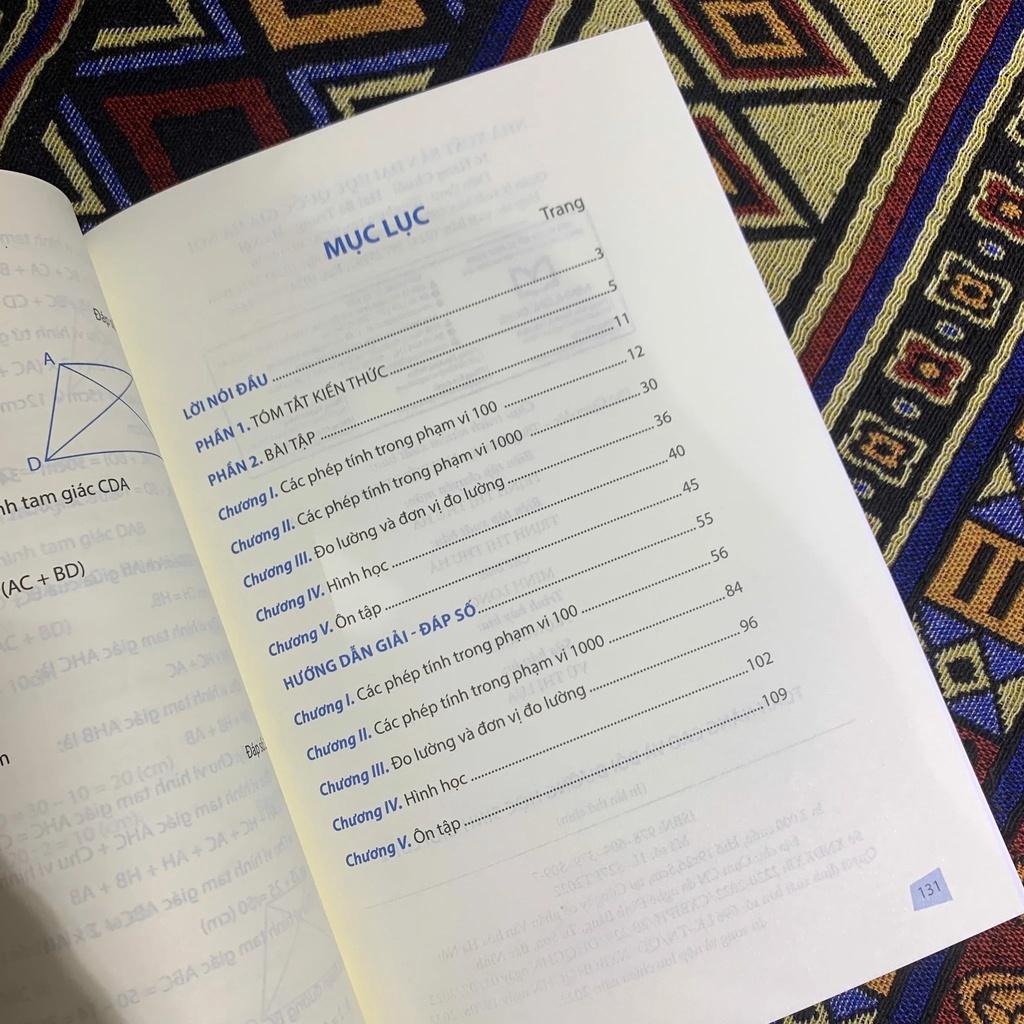 MỤC LỤC
Trang
LỜI NÓI ĐẦU ........ 3
PHẦN 1. TÓM TẮT KIẾN THỨC ........ 5
PHẦN 2. BÀI TẬP ........ 11
Chương I. Các phép tính trong phạm vi 100 ........ 12
Chương II. Các phép tính trong phạm vi 1000 ........ 30
Chương III. Đo lường và đơn vị đo lường ........ 36
Chương IV. Hình học ........ 40
Chương V. Ôn tập ........ 45
HƯỚNG DẪN GIẢI - ĐÁP SỐ ........ 55
Chương I. Các phép tính trong phạm vi 100 ........ 56
Chương II. Các phép tính trong phạm vi 1000 ........ 84
Chương III. Đo lường và đơn vị đo lường ........ 96
Chương IV. Hình học ........ 102
Chương V. Ôn tập ........ 109
131
A
D
tam giác CDA
(AC + BD)